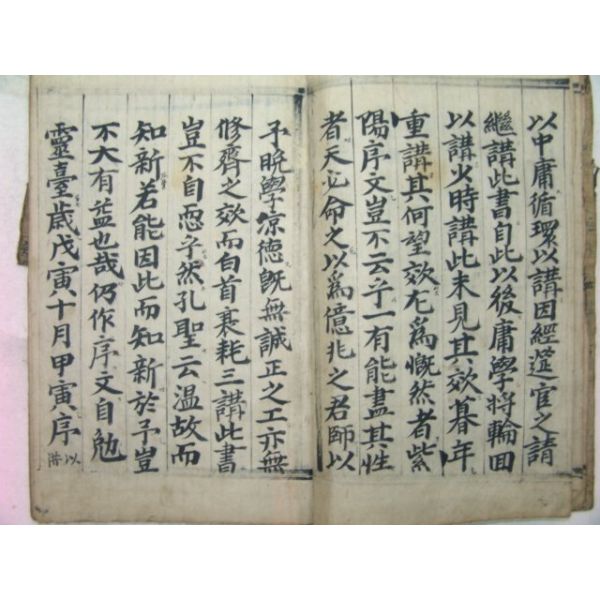 以中庸循環以講因經筵官之請
繼講此書自此以後庸學將輪回
以講少時講此未見其效暮年
重講其何望效尤爲慨然者紫
陽序文豈不云乎一有能盡其性
者天必命之以爲億兆之君師以
予晚學凉德旣無誠正之工亦無
修齊之效而白首衰耗三講此書
豈不自恧乎然孔聖云溫故而
知新若能因此而知新於予豈
不大有益也哉仍作序文自勉
靈臺歲戊寅十月甲寅序